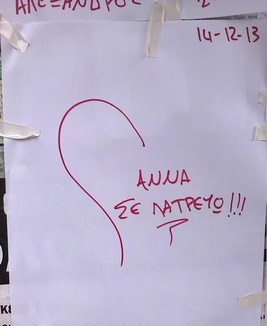 ΑΛΕΞΑΝΔΡΟΣ
14-12-13
ΑΝΝΑ
ΣΕ ΛΑΤΡΕΥΩ!!!